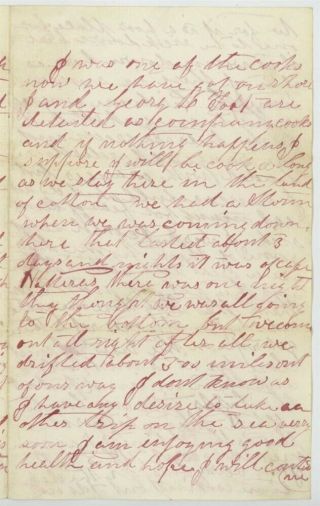 I was one of the cooks
now we have got on shore
I and georg W Foot are
detailed as company cooks
and if nothing happens I
suppose I will be cook as long
as we stay here in the land
of cotton we had a Storm
when we was coming down
there that lasted about 3
days and nights it was of cape
Hatteras there was one night
they thought we was all going
to the bottom but we come
out all right after all we
drifted about as miles out
of our way I dont know as
I have any desire to take an
other trip on the sea very
soon I am enjoying good
health and hope I will contin
ue